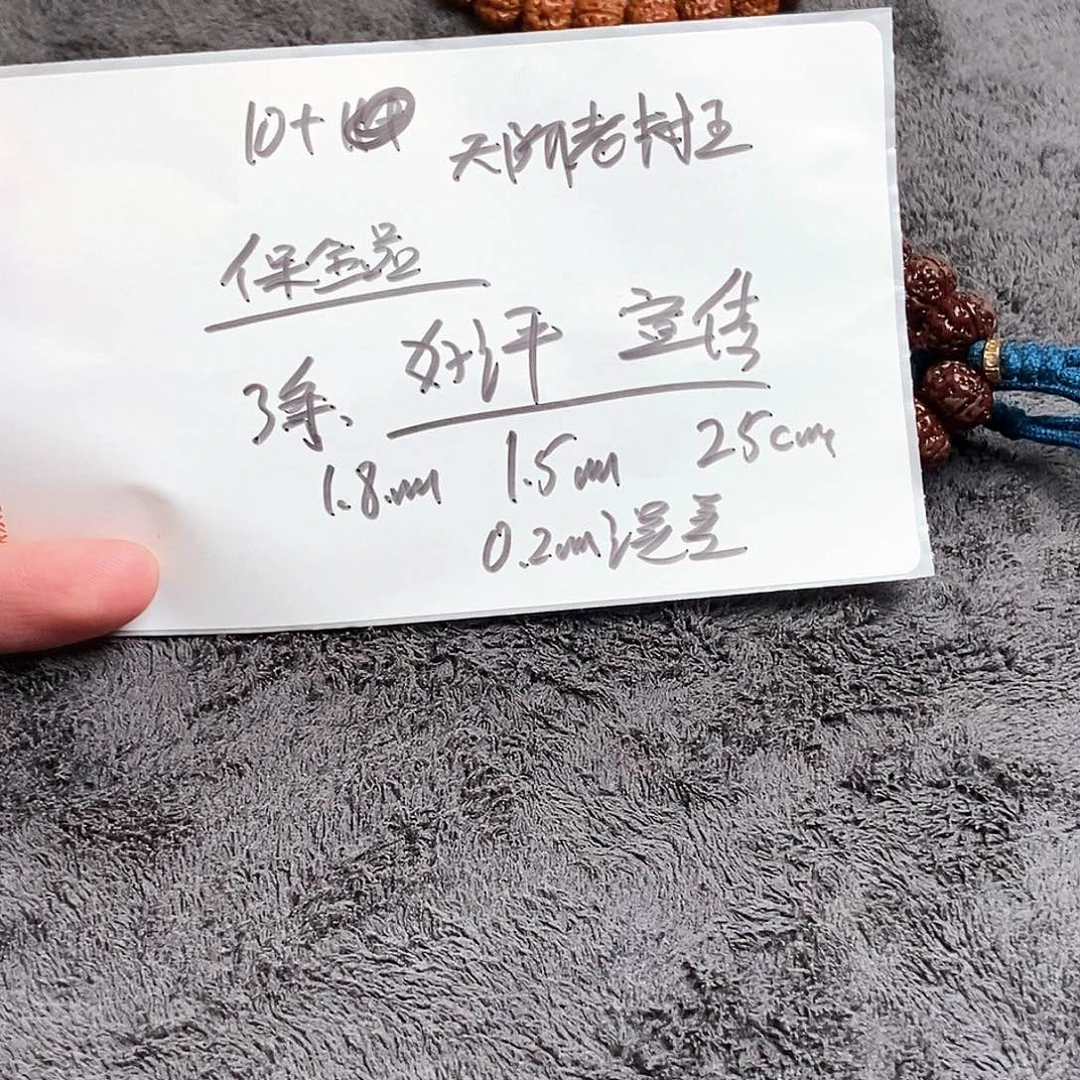 10+ 天 老树王
保金品
3条、好评 宣传
1.8m 1.5m 25cm
0.2m误差